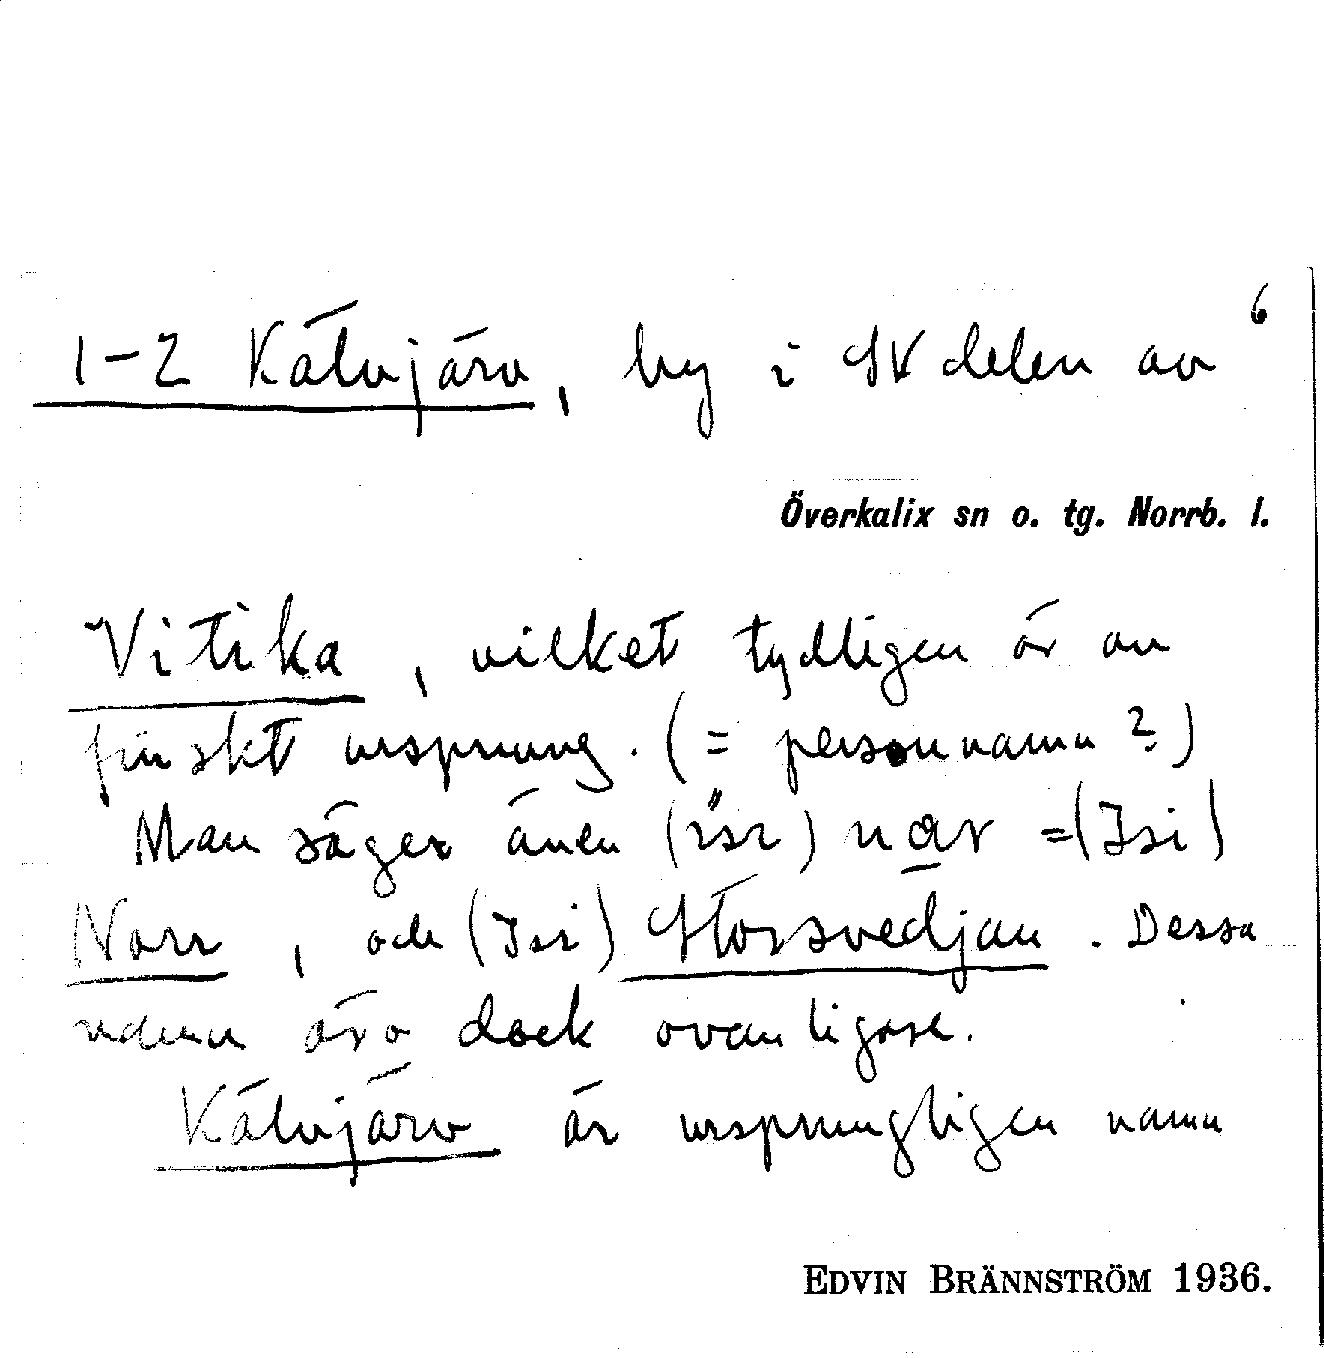 6
1-2 Kälvjärv, by i SV delen av
Överkalix sn o. tg. Norrb. l.
Vitika, vilket tydligen är av
finskt ursprung. (= personnamn?)
Man säger även nar = (Isi)
Norr, och (Isi) Storsvedjan. Dessa
namn äro dock ovanligare.
Kälvjärv är ursprungligen namn
EDVIN BRÄNNSTRÖM 1936.